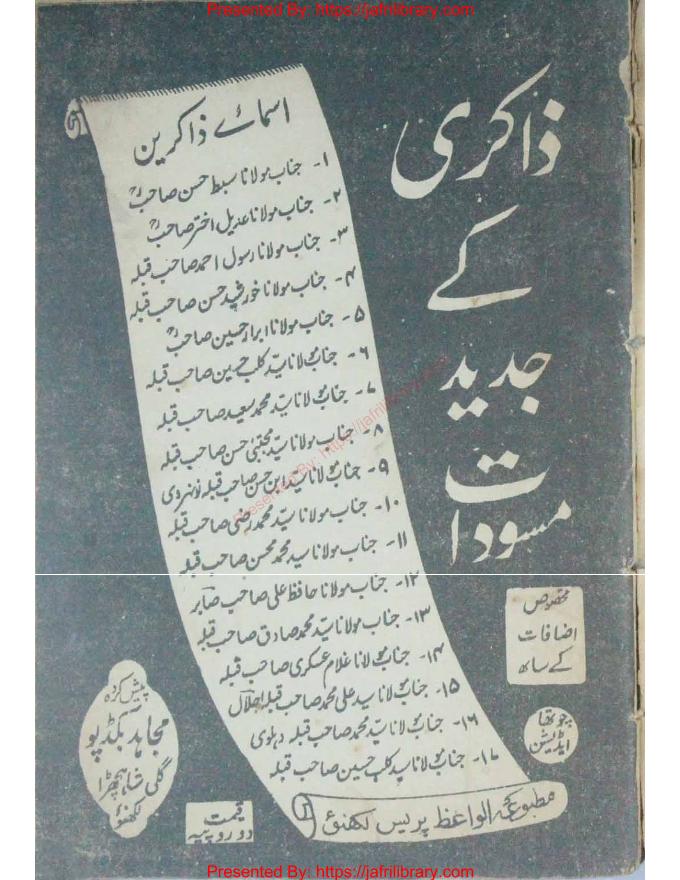 Presented By: https://jafrilibrary.com
ذاکری
کے
جدید
مسودات
اسمائے ذاکرین
۱- جناب مولانا سبط حسن صاحبؒ
۲- جناب مولانا عدیل اختر صاحبؒ
۳- جناب مولانا رسول احمد صاحب قبلہ
۴- جناب مولانا خورشید حسن صاحب قبلہ
۵- جناب مولانا ابرار حسین صاحبؒ
۶- جناب مولانا سیّد کلب حسین صاحب قبلہ
۷- جناب مولانا سیّد محمد سعید صاحب قبلہ
۸- جناب مولانا سیّد مجتبیٰ حسن صاحب قبلہ
۹- جناب مولانا سیّد ابن حسن صاحب قبلہ نونہروی
۱۰- جناب مولانا سیّد محمد رضی صاحب قبلہ
۱۱- جناب مولانا سید محمد محسن صاحب قبلہ
۱۲- جناب مولانا حافظ علی صاحب صابر
۱۳- جناب مولانا سیّد محمد صادق صاحب قبلہ
۱۴- جناب مولانا غلام عسکری صاحب قبلہ
۱۵- جناب مولانا سید علی محمد صاحب قبلہ اجلال
۱۶- جناب مولانا سیّد محمد صاحب قبلہ دہلوی
۱۷- جناب مولانا سید کلب حسین صاحب قبلہ
مطبوعہ الواعظ پریس لکھنؤ
مخصوص
اضافات
کے ساتھ
چوتھا
ایڈیشن
پیش کردہ
مجاہد بکڈپو
گلی شاہ چھڑا
لکھنؤ
قیمت
دو روپیہ
Presented By: https://jafrilibrary.com
Presented By: https://jafrilibrary.com